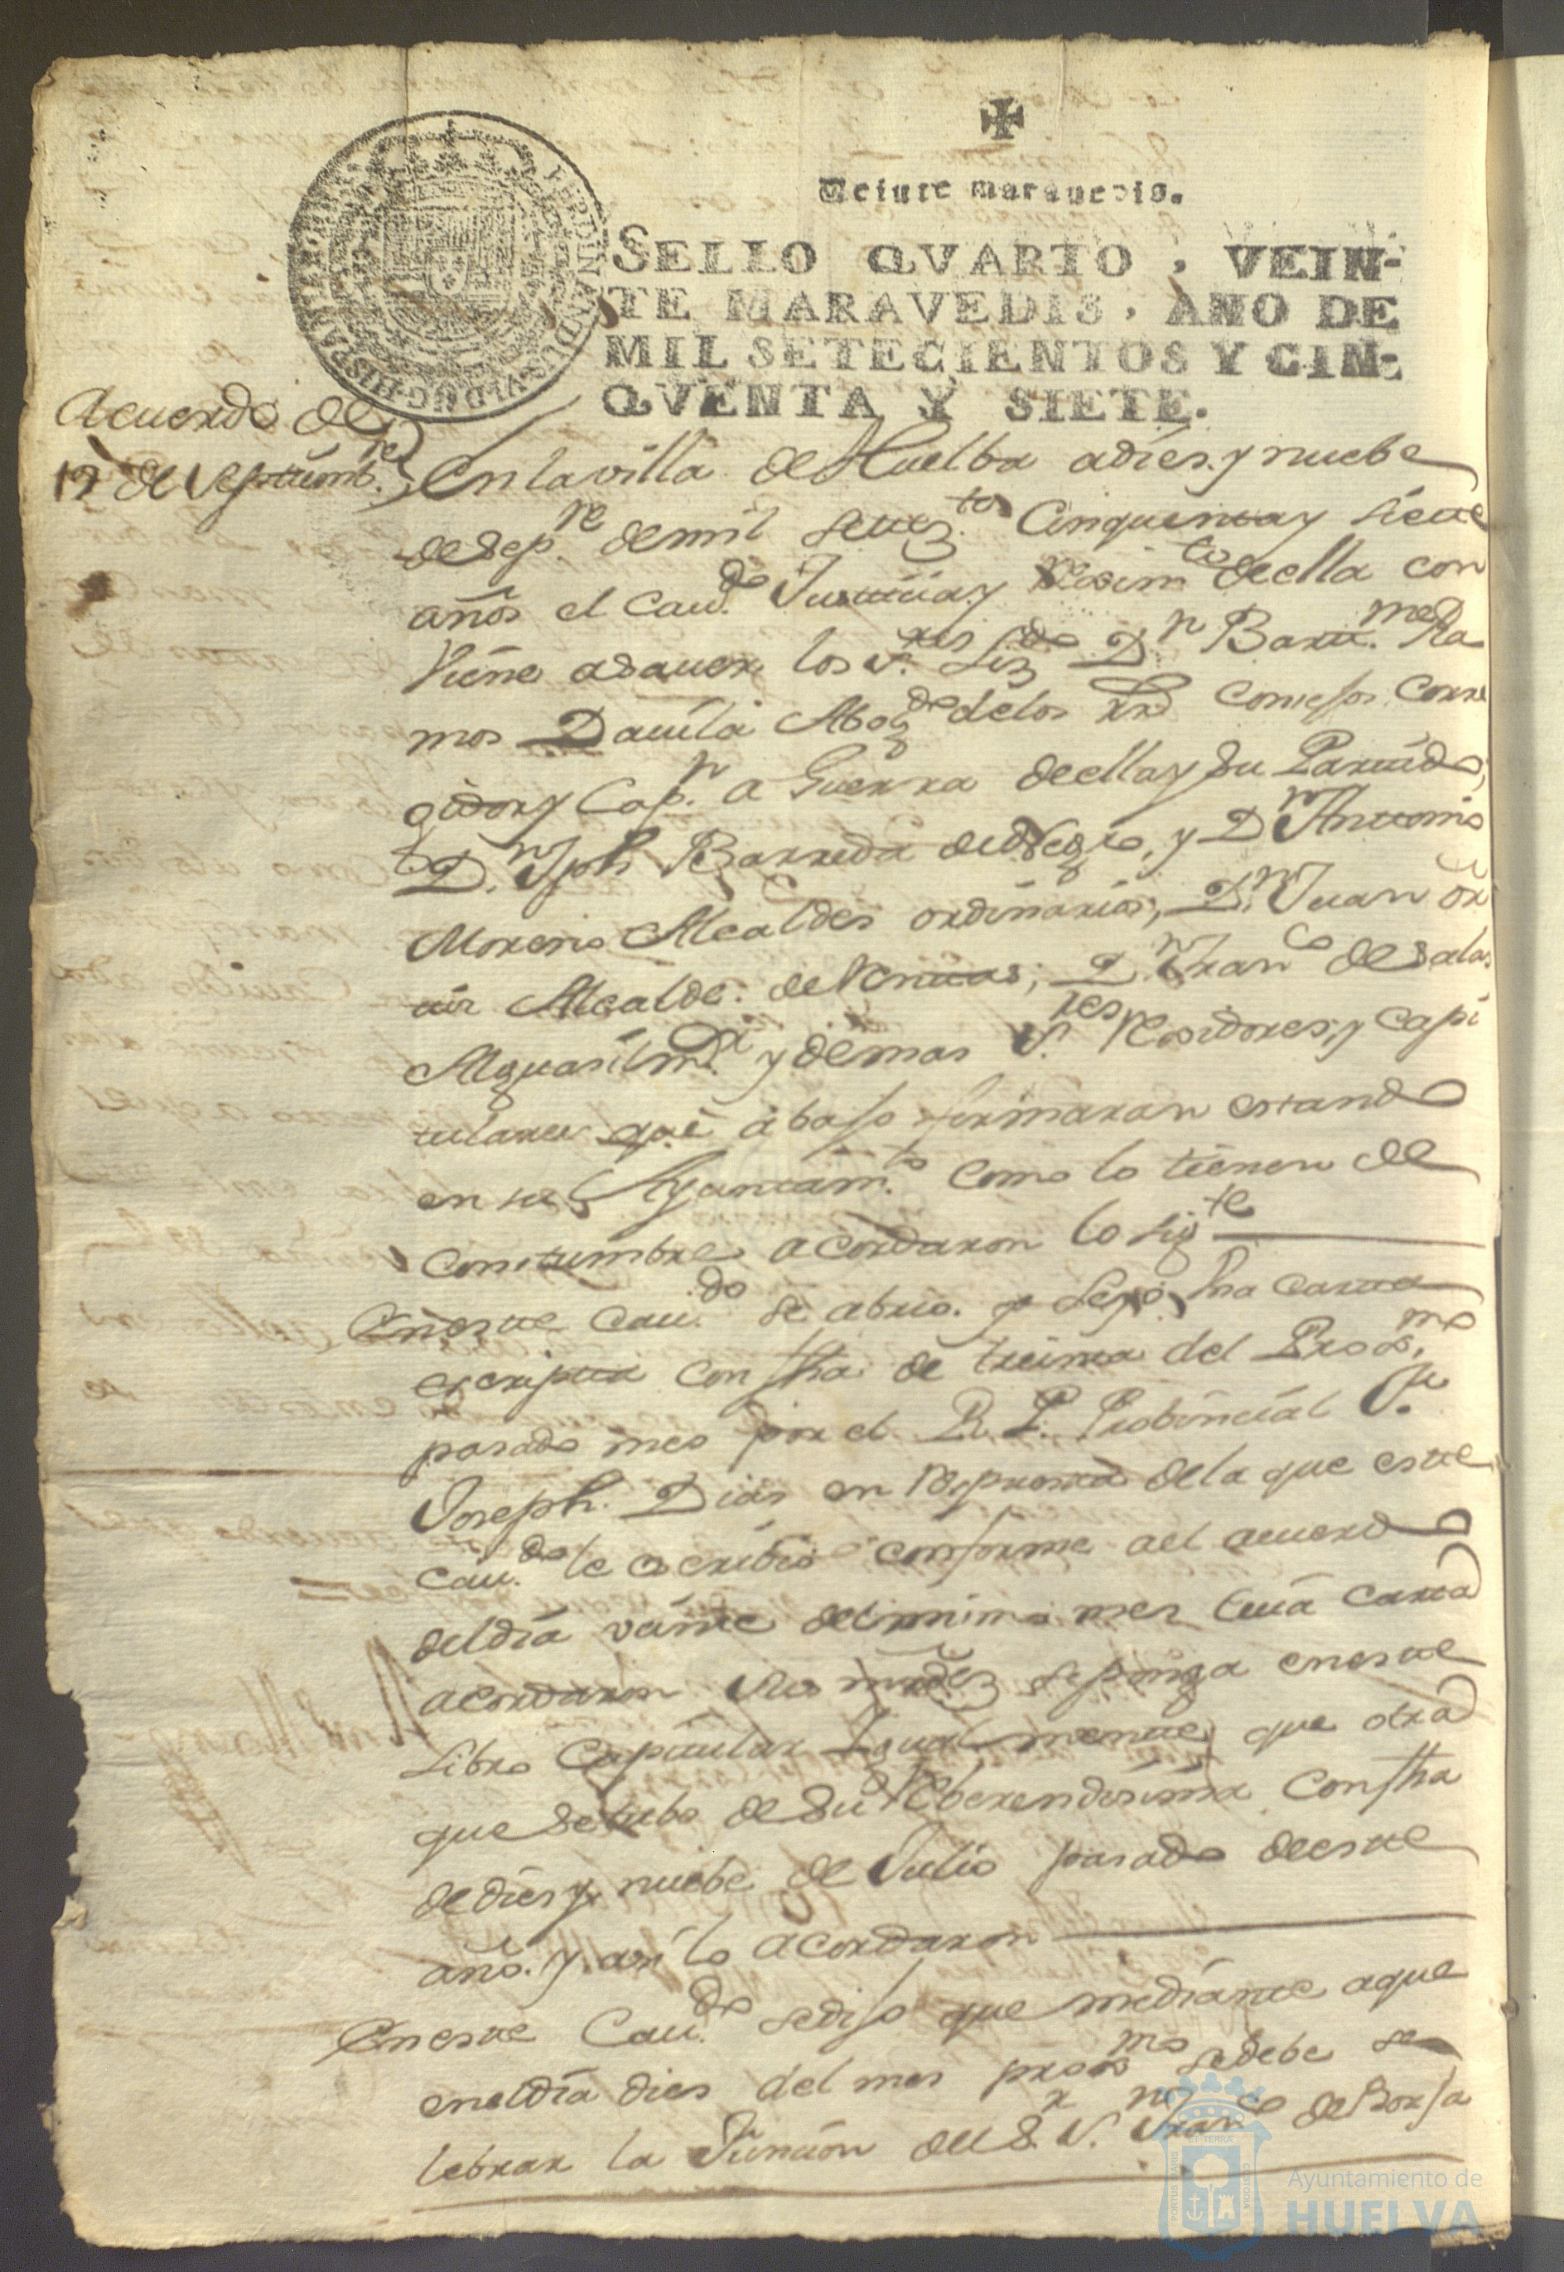 ✠
Veinte maravedis.
SELLO QVARTO, VEIN-
TE MARAVEDIS, AÑO DE
MIL SETECIENTOS Y CIN-
QVENTA Y SIETE.
FERDINANDUS·VI·D·G·HISPANIAR·REX
Acuerdo de
19 de Septiembre
En la villa de Huelba a dies y nuebe
de Sep.re de mil setez.tos Cinquenta y siete
años el Cau.do Justicia y Rexim.to de ella con
biene a sauer los S.res Liz.do D.n Bartt.me Ra
mos Dauila Abog.do de los Rs Consejos Corre
gidor y Cap.n a Guerra de ella y su Partido,
D.n Jph Barreda y D.n Antonio
Moreno Alcaldes ordinarios, D.n Juan or
tiz Alcalde de Rentas, D.n Fran.co de Salas
Alguasil m.or y demas S.res Rexidores, y Capi
tulares que abajo firmaran estando
en su Ayuntam.to como lo tienen de
Constumbre acordaron lo sig.te
En este Cau.do se abrio y leyo Vna Carta
escripta con fha de treinta del Prox.mo
pasado mes por el R. P. Probincial
Joseph Dias en respuesta de la que este
Cau.do le escribio conforme a el acuerdo
del dia veinte del mismo mes cuia carta
acordaron sus mrdez se ponga en este
Libro Capitular Igualmente que otra
que se tubo de su Reberendisima Con fha
de dies y nuebe de Julio pasado de este
año. y asi lo acordaron
En este Cau.do se dijo que mediante a que
en el dia dies del mes prox.mo se debe se
lebrar la Funcion del S.r S.n Fran.co de Borja
Ayuntamiento de
HUELVA